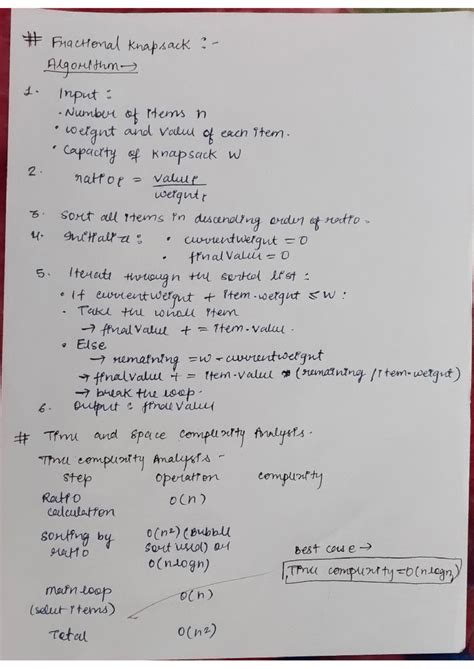 # Fractional Knapsack :-
Algorithm →
1. Input :
· Number of items n
· weight and value of each item.
· Capacity of Knapsack W
2. ratioᵢ = valueᵢ / weightᵢ
3. Sort all items in descending order of ratio.
4. Initialize : · currentweight = 0
· finalvalue = 0
5. Iterate through the sorted list :
· If currentweight + item.weight ≤ W :
· Take the whole item
→ finalvalue + = item.value.
· Else
→ remaining = W - currentweight
→ finalvalue + = item.value * (remaining / item.weight)
→ break the loop.
6. Output : finalvalue
# Time and Space Complexity Analysis.
Time complexity Analysis :-
Step operation complexity
Ratio calculation O(n)
sorting by ratio O(n²) (Bubble
sort used) or
O(nlogn)
Best case →
Time complexity = O(nlogn)
main loop O(n)
(select items)
Total O(n²)